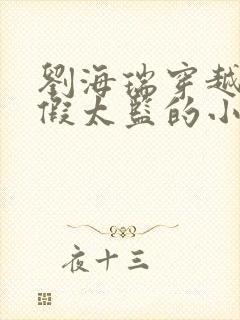 劉海瑞穿越
假太監的小
夜十三